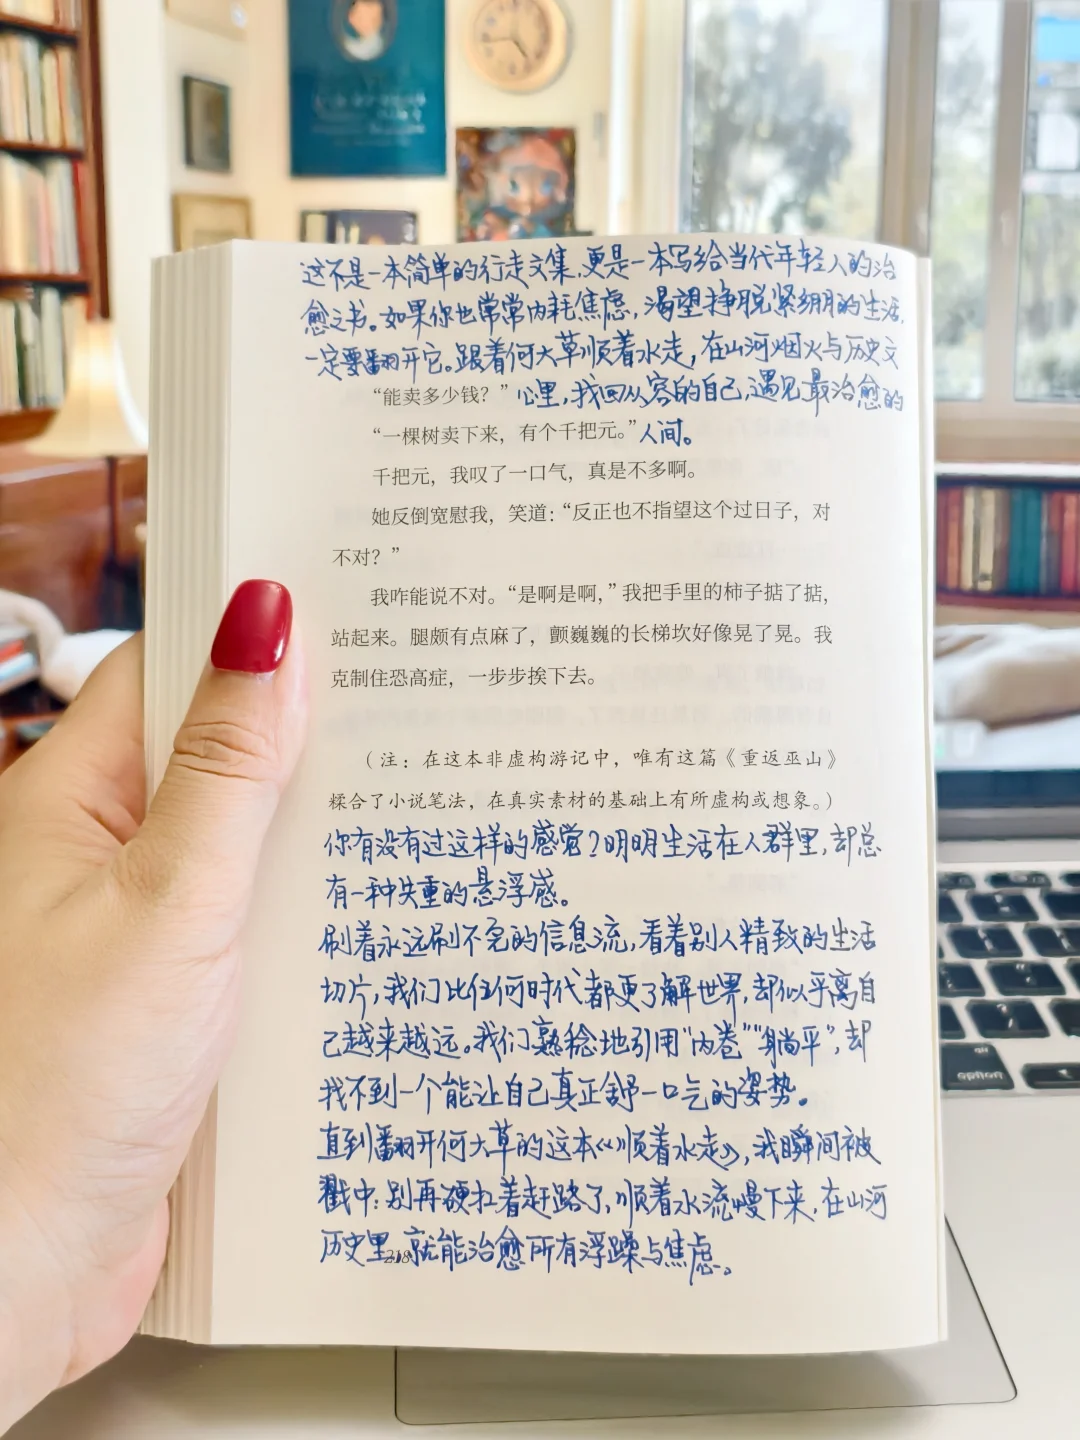 这不是一本简单的行走文集,更是一本写给当代年轻人的治
愈之书。如果你也常常内耗焦虑,渴望挣脱紧绷的生活,
一定要翻开它。跟着何大草顺着水走,在山河烟火与历史文
“能卖多少钱？” 心里,找回从容的自己,遇见最治愈的
“一棵树卖下来，有个千把元。”人间。
千把元，我叹了一口气，真是不多啊。
她反倒宽慰我，笑道：“反正也不指望这个过日子，对
不对？”
我咋能说不对。“是啊是啊，”我把手里的柿子掂了掂，
站起来。腿颇有点麻了，颤巍巍的长梯坎好像晃了晃。我
克制住恐高症，一步步挨下去。
（注：在这本非虚构游记中，唯有这篇《重返巫山》
糅合了小说笔法，在真实素材的基础上有所虚构或想象。）
你有没有过这样的感觉?明明生活在人群里,却总
有一种失重的悬浮感。
刷着永远刷不完的信息流,看着别人精致的生活
切片,我们比任何时代都更了解世界,却似乎离自
己越来越远。我们熟稔地引用“内卷”“躺平”,却
找不到一个能让自己真正舒一口气的姿势。
直到翻开何大草的这本《顺着水走》,我瞬间被
戳中:别再硬扛着赶路了,顺着水流慢下来,在山河
历史里,就能治愈所有浮躁与焦虑。
218
option